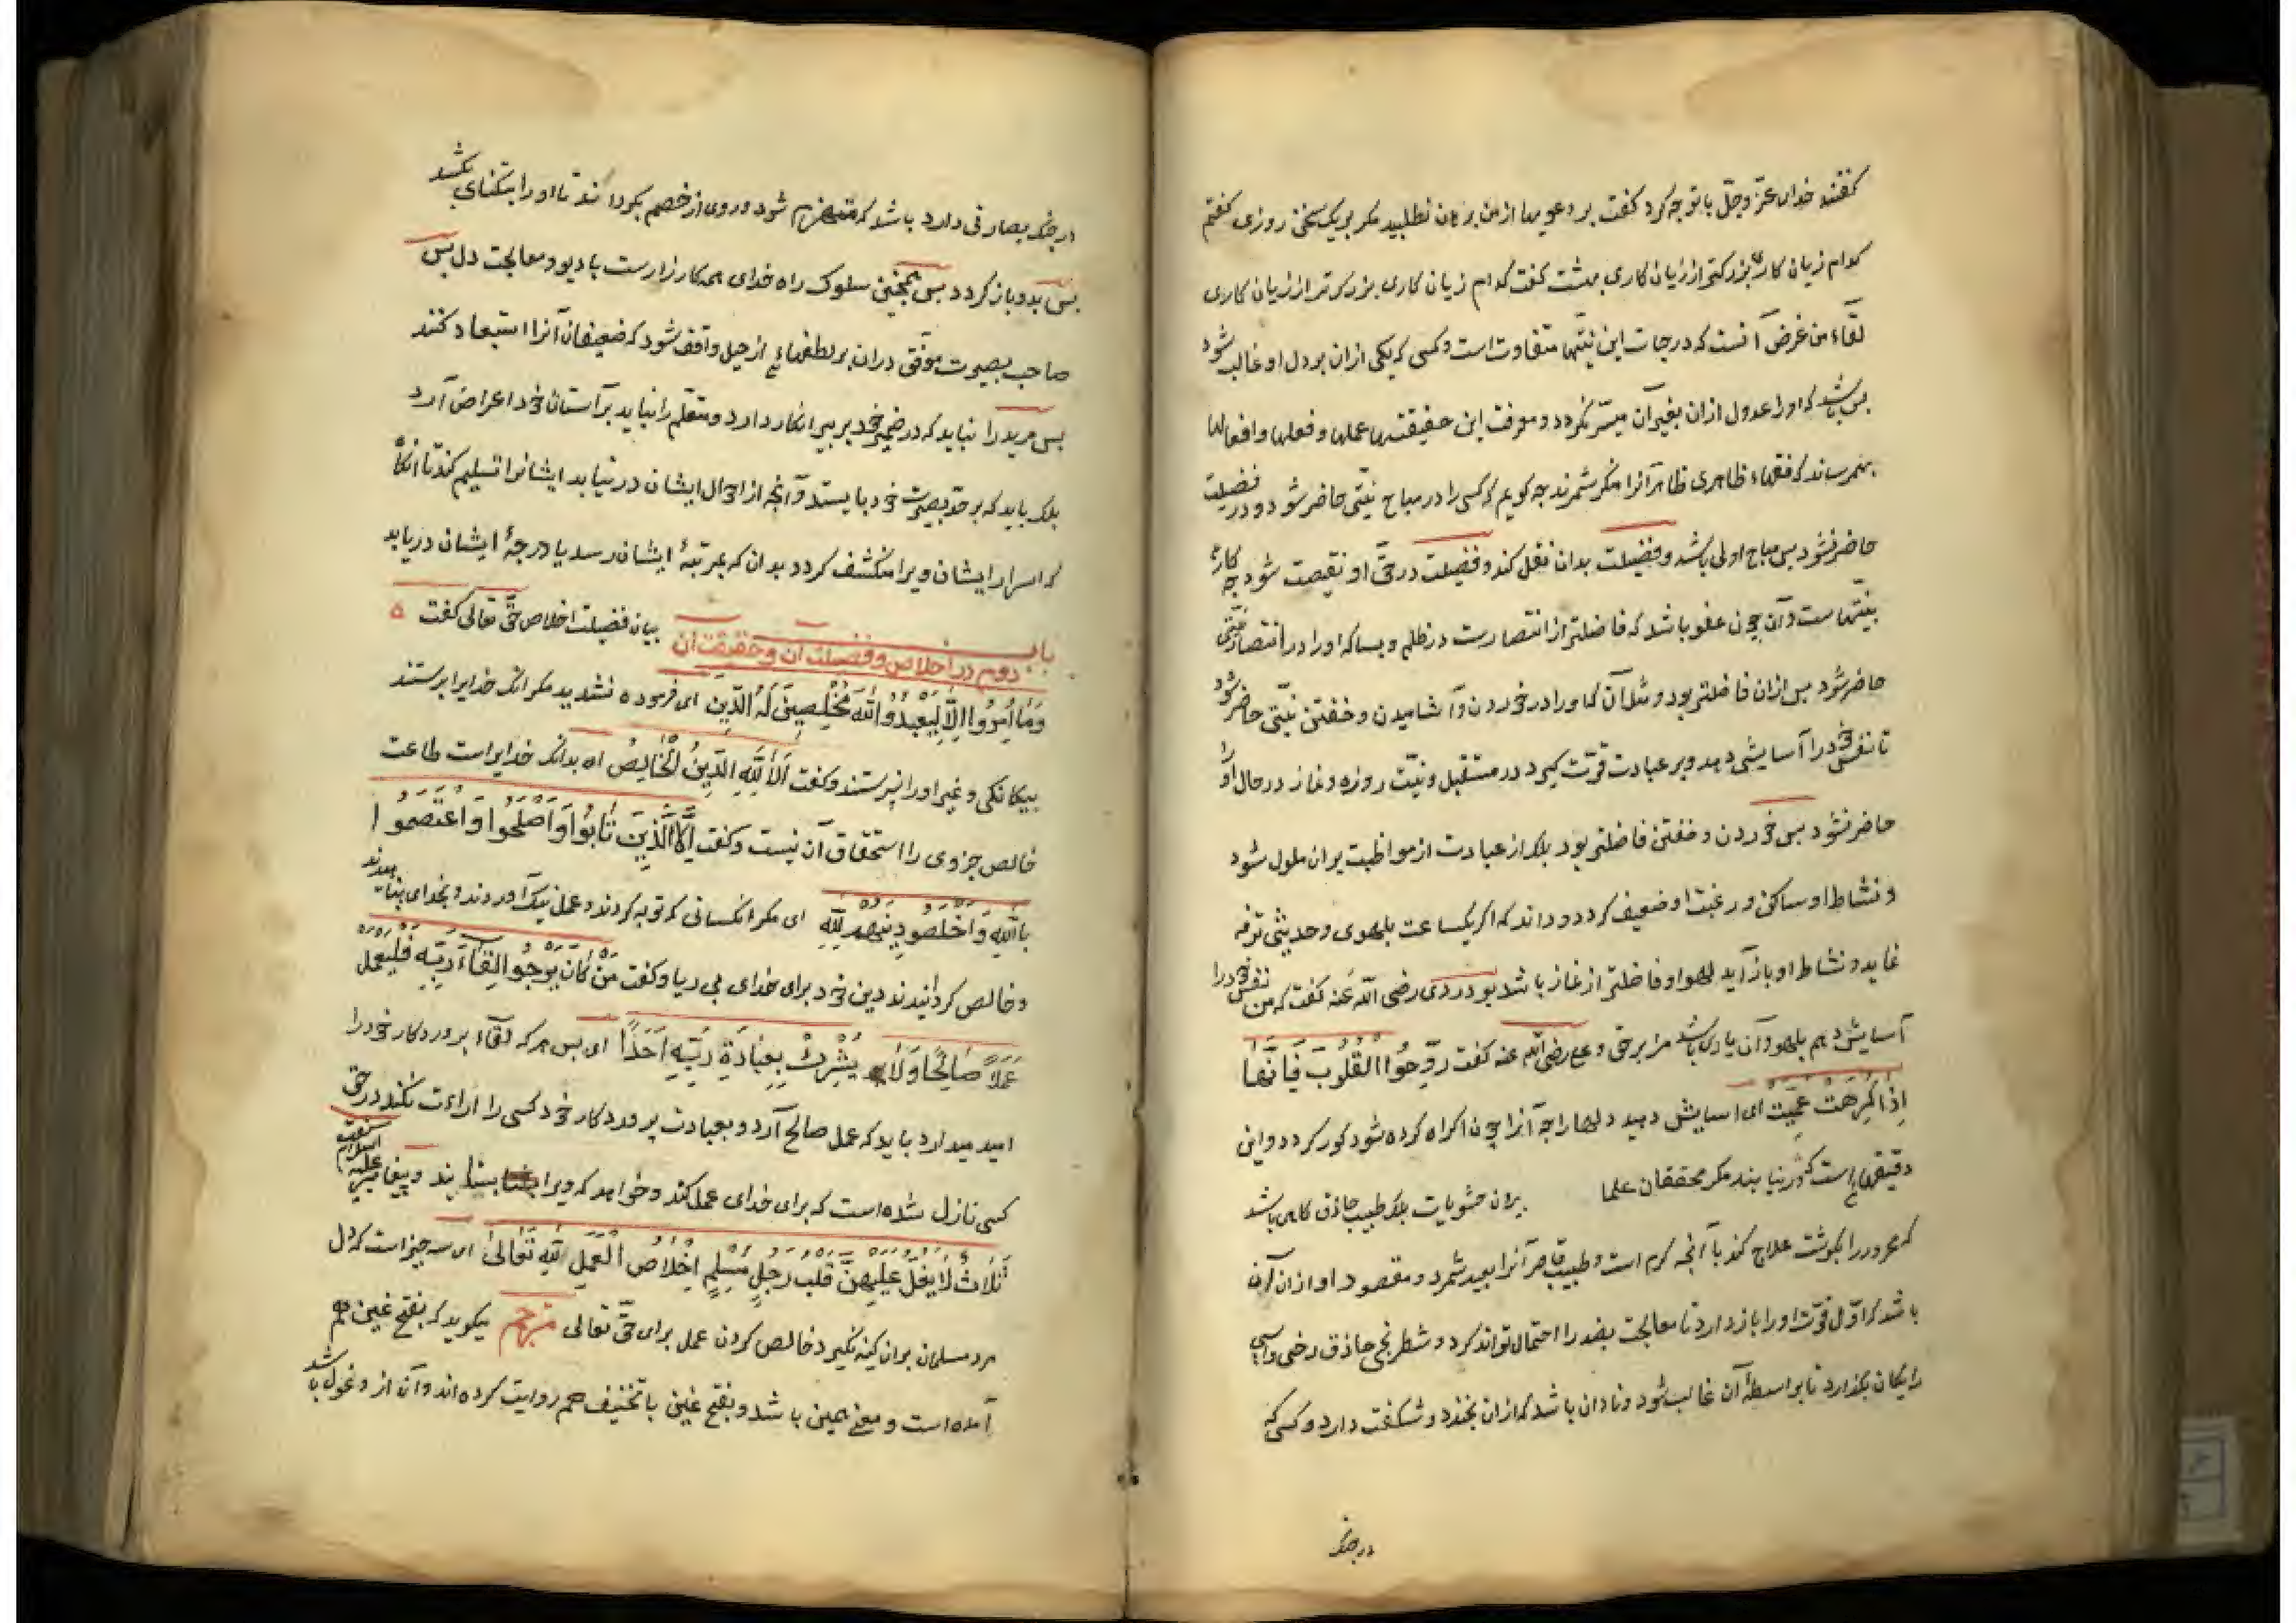 گفتند خدای عزّ وجلّ با تو چه کرد گفت بر دعویها از من برهان نطلبید مکر بر یک سخن روزی گفتم
کدام زیان کاری بزرکتر از زیان کاری بهشت گفت کدام زیان کاری بزرکتر از زیان کاری
لقاء من غرض آنست که درجات این نیّتها متفاوت است و کسی که یکی ازان بر دل او غالب شود
بس باشد که او را عدول ازان بغیر آن میسّر نکردد و معرفت این حقیقتها عملها و فعلها و افعالها
بثمر رساند که فقهاء ظاهری ظاهر آنرا منکر شمرند چه کویم که کسی را در مباح نیّتی حاضر شود و در فضیلت
حاضر نشود بس مباح اولی باشد و فضیلت بدان نقل کند و فضیلت در حقّ او نقیصت شود چه کارها
بنیّتهاست و آن چون عفو باشد که فاضلتر از انتصارست در ظلم و بسا که او را در انتصار نیّتی
حاضر شود بس ازان فاضلتر بود و مثل آن که او را در خوردن و آشامیدن و خفتن نیّتی حاضر شود
تا نفس خود را آسایشی دهد و بر عبادت قوّت کیرد در مستقبل و نیّت روزه و نماز در حال او را
حاضر نشود بس خوردن و خفتن فاضلتر بود بلکه از عبادت از مواظبت بران ملول شود
و نشاط او ساکن و رغبت او ضعیف کردد و داند که اکر یکساعت بلهوی و حدیثی ترفه
نماید و نشاط او باز آید لهو او فاضلتر از نماز باشد بو دردی رضی الله عنه گفت که من نفس خود را
آسایش دهم بلهو و آن یاری باشد مرا بر حق و علی رضی الله عنه کفت رَوِّحُوا الْقُلُوبَ فَاِنَّهَا
اِذَا كُرِهَتْ عَمِيَتْ ای اسایش دهید دلها را چه آنرا چون اکراه کرده شود کور کردد و این
دقیقهاء است که در نیابند مکر محققان علما برون حشویات بلکه طبیب حاذق کاهی باشد
که محرور را بکوشت علاج کند با آنچه کرم است و طبیب قاصر آنرا بعید شمرد و مقصود او ازان آن
باشد که اوّل قوّت او را باز دارد تا معالجت بضد را احتمال تواند کرد و شطرنجی حاذق رخی و اسبی
رایکان بکذارد تا بواسطهٔ آن غالب شود و نادان باشد که ازان بخندد و شکفت دارد و کسی که
در جنک
در جنک بصارتی دارد باشد که منهزم شود و روی از خصم بکرداند تا او را بتنکنای بکشد
بس بدو باز کردد بس همچنین سلوک راه خدای همه کارزارست با دیو و معالجت دل بس
صاحب بصیرت موفّق دران بر لطفهاءِ از حیل واقف شود که ضعیفان آنرا استبعاد کنند
بس مرید را نباید که در ضمیر خود بر پیر انکار دارد و متعلّم را نباید بر آستان خود اعراض آرد
بلکه باید که بر حدّ بصیرت خود بایستد و آنچه از احوال ایشان در نیابد ایشانرا تسلیم کند تا انکاه
که اسرار ایشان ویرا منکشف کردد بدان که بمرتبهٔ ایشان رسد یا درجهٔ ایشان دریابد
باب دوم در اخلاص و فضیلت آن و حقیقت آن بیان فضیلت اخلاص حقّ تعالی کفت ۵
وَمَا اُمِرُوا اِلَّا لِيَعْبُدُوا اللهَ مُخْلِصِينَ لَهُ الدِّينَ ای فرموده نشدید مکر انک خدایرا پرستند
بیکانکی و غیر او را نپرستند و کفت اَلَا لِلّٰهِ الدِّينُ الْخَالِصُ اه بدانک خدایراست طاعت
خالص جز وی را استحقاق آن نیست و کفت اِلَّا الَّذِينَ تَابُوا وَاَصْلَحُوا وَاعْتَصَمُوا
بِاللّٰهِ وَاَخْلَصُوا دِينَهُمْ لِلّٰهِ ای مکر انکسانی که توبه کردند و عمل نیک آوردند و بخدای پناهیدند
و خالص کردانیدند دین خود برای خدای بی ریا و کفت مَنْ كَانَ يَرْجُوا لِقَاءَ رَبِّهِ فَلْيَعْمَلْ
عَمَلًا صَالِحًا وَلَا يُشْرِكْ بِعِبَادَةِ رَبِّهِ اَحَدًا ای بس هر که لقاء پروردکار خود را
امید میدارد باید که عمل صالح آرد و بعبادت پروردکار خود کسی را اراءت نکند در حق
کسی نازل شده است که برای خدای عمل کند و خواهد که ویرا بستایند و پیغامبر علیه السلام کفت
ثَلَاثٌ لَا يَغِلُّ عَلَيْهِنَّ قَلْبُ رَجُلٍ مُسْلِمٍ اِخْلَاصُ الْعَمَلِ لِلّٰهِ تَعَالٰى ای سه چیز است که دل
مرد مسلمان بران کینه نکیرد خالص کردن عمل برای حقّ تعالی مترجم میکوید که بفتح غین هم
آمده است و معنی همین باشد و بفتح غین با تخفیف هم روایت کرده اند و آن از وغول باشد